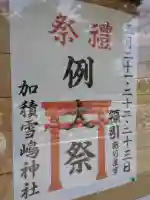 二月二十一・二十二・二十三日
禮祭
例大祭
加積雪嶋神社